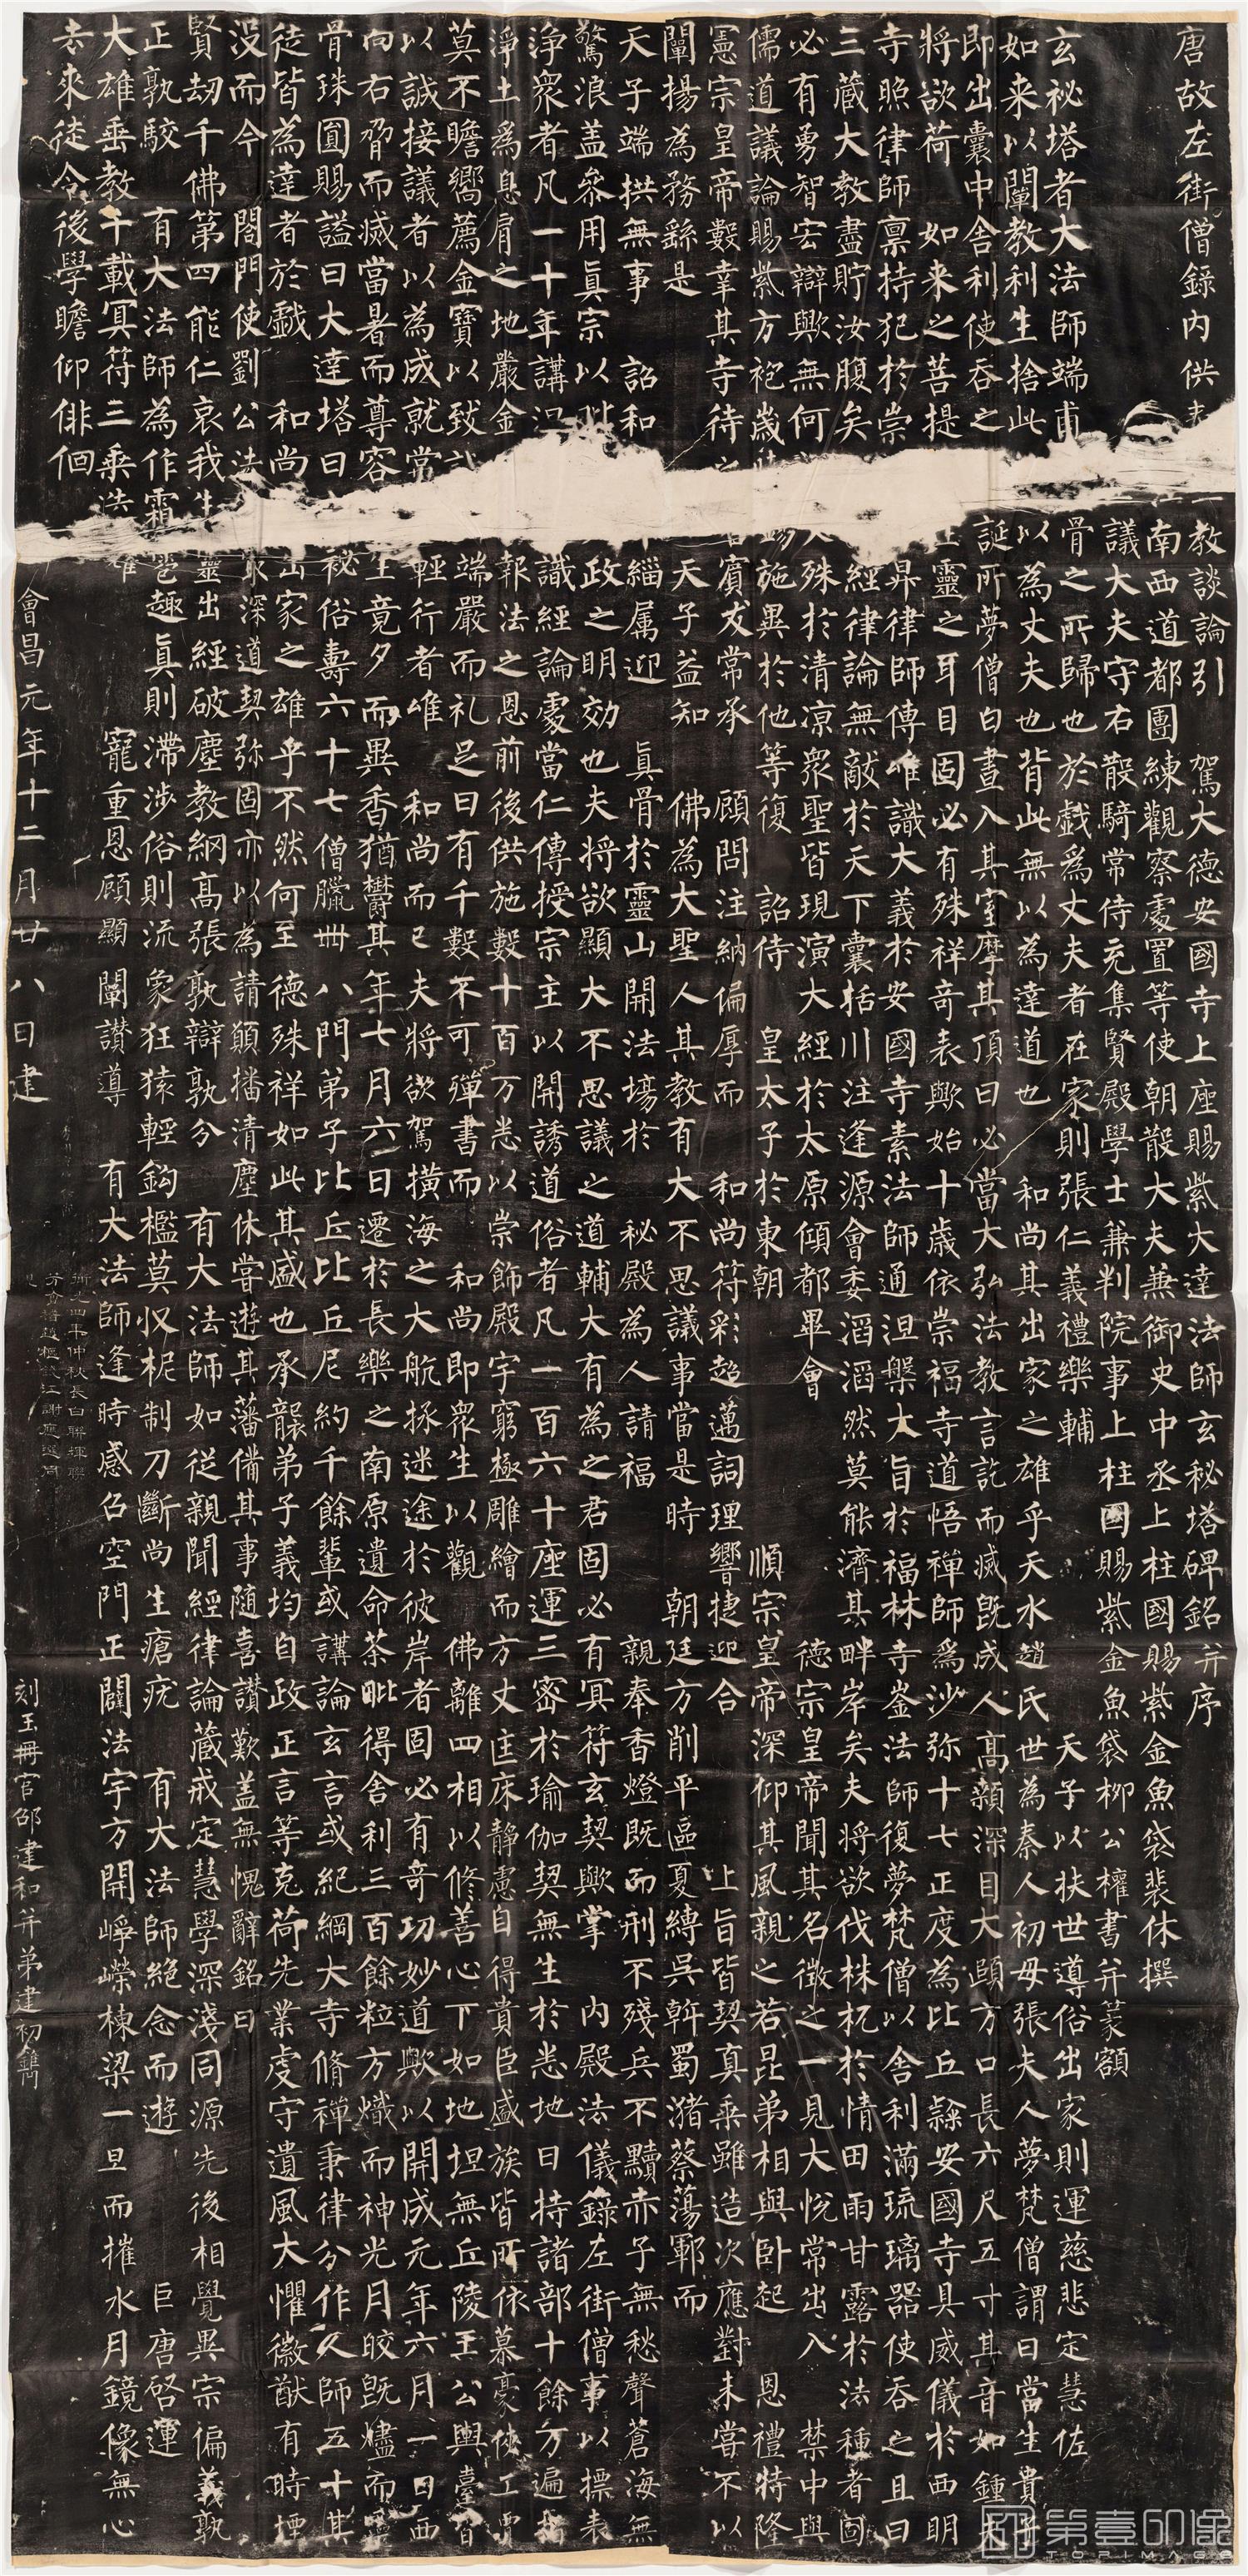 唐故左街僧錄內供 教談論引　駕大德安國寺上座賜紫大達法師玄秘塔碑銘并序
南西道都團練觀察處置等使朝散大夫兼御史中丞上柱國賜紫金魚袋裴休撰
議大夫守右散騎常侍充集賢殿學士兼判院事上柱國賜紫金魚袋柳公權書并篆額
玄祕塔者大法師端甫 骨之所歸也於戲為丈夫者在家則張仁義禮樂輔　天子以扶世導俗出家則運慈悲定慧佐
如来以闡教利生捨此 以為丈夫也背此無以為達道也　和尚其出家之雄乎天水趙氏世為秦人初母張夫人夢梵僧謂曰當生貴子
即出囊中舍利使吞之 誕所夢僧白晝入其室摩其頂曰必當大弘法教言訖而滅既成人高顙深目大頤方口長六尺五寸其音如鍾
將欲荷　如来之菩提 靈之耳目固必有殊祥奇表歟始十歲依崇福寺道悟禪師為沙弥十七正度為比丘隸安國寺具威儀於西明
寺照律師禀持犯於崇 昇律師傳唯識大義於安國寺素法師通涅槃大旨於福林寺崟法師復夢梵僧以舍利滿琉璃器使吞之且曰
三藏大教盡貯汝腹矣 經律論無敵於天下囊括川注逢源會委滔滔然莫能濟其畔岸矣夫將欲伐株杌於情田雨甘露於法種者固
必有勇智宏辯歟無何 殊於清凉衆聖皆現演大經於太原傾都畢會　德宗皇帝聞其名徵之一見大悅常出入　禁中與
儒道議論賜紫方袍歲 施異於他等復　詔侍　皇太子於東朝　順宗皇帝深仰其風親之若昆弟相與卧起　恩禮特隆
憲宗皇帝數幸其寺待 賓友常承　顧問注納偏厚而　和尚符彩超邁詞理響捷迎合　上旨皆契真乘雖造次應對未嘗不以
闡揚為務繇是 天子益知　佛為大聖人其教有大不思議事當是時　朝廷方削平區夏縛吳斡蜀瀦蔡蕩鄆而
天子端拱無事　詔和 緇属迎　真骨於靈山開法場於　秘殿為人請福　親奉香燈既而刑不殘兵不黷赤子無愁聲蒼海無
驚浪盖參用真宗以 政之明効也夫將欲顯大不思議之道輔大有為之君固必有冥符玄契歟掌　內殿法儀錄左街僧事以標表
淨衆者凡一十年講 識經論處當仁傳授宗主以開誘道俗者凡一百六十座運三密於瑜伽契無生於悉地日持諸部十餘万遍指
淨土為息肩之地嚴金 報法之恩前後供施數十百万悉以崇飾殿宇窮極雕繪而方丈匡床靜慮自得貴臣盛族皆所依慕豪俠工賈
莫不瞻嚮薦金寶以致 端嚴而礼足日有千數不可殫書而　和尚即衆生以觀　佛離四相以修善心下如地坦無丘陵王公輿臺皆
以誠接議者以為成就常 輕行者唯　和尚而已夫將欲駕橫海之大航拯迷途於彼岸者固必有奇功妙道歟以開成元年六月一日西
向右脅而滅當暑而尊容 竟夕而異香猶鬱其年七月六日遷於長樂之南原遺命茶毗得舍利三百餘粒方熾而神光月皎既燼而靈
骨珠圓賜謚曰大達塔曰 秘俗壽六十七僧臘卌八門弟子比丘比丘尼約千餘輩或講論玄言或紀綱大寺脩禪秉律分作人師五十其
徒皆為達者於戲　和尚 出家之雄乎不然何至德殊祥如此其盛也承襲弟子義均自政正言等克荷先業虔守遺風大懼徽猷有時堙
没而今　閤門使劉公法 深道契弥固亦以為請願播清塵休嘗遊其藩備其事随喜讚歎盖無愧辭銘曰
賢劫千佛第四能仁哀我生 靈出經破塵教綱高張孰辯孰分　有大法師如從親聞經律論藏戒定慧學深淺同源先後相覺異宗偏義孰
正孰駮　有大法師為作霜 趣真則滯涉俗則流象狂猿輕鈎檻莫收柅制刀斷尚生瘡疣　有大法師絶念而遊　巨唐啓運
大雄垂教千載冥符三乘 寵重恩顧顯　闡讚導　有大法師逢時感召空門正闢法宇方開崢嶸棟梁一旦而摧水月鏡像無心
去來徒令後學瞻仰俳佪
會昌元年十二月廿八日建　刻玉冊官邵建和并弟建初鐫
第壹印像
TOPIMAGE